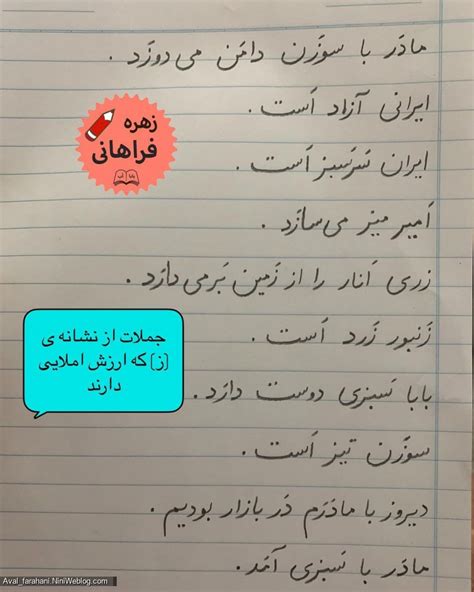 مادَر با سوزَن دامَن می دوزَد .
ایرانی آزاد اَست .
زهره
فراهانی
ایران سَرسَبز اَست .
اَمیر میز می سازَد .
زری اَنار را از زَمین بَرمی دارَد .
زَنبور زَرد اَست .
جملات از نشانه ی
(ز) که ارزش املایی
دارند
بابا سَبزی دوست دارَد .
سوزَن تیز اَست .
دیروز با مادَرَم دَر بازار بودیم .
مادَر با سَبزی آمَد .
Aval_farahani.NiniWeblog.com